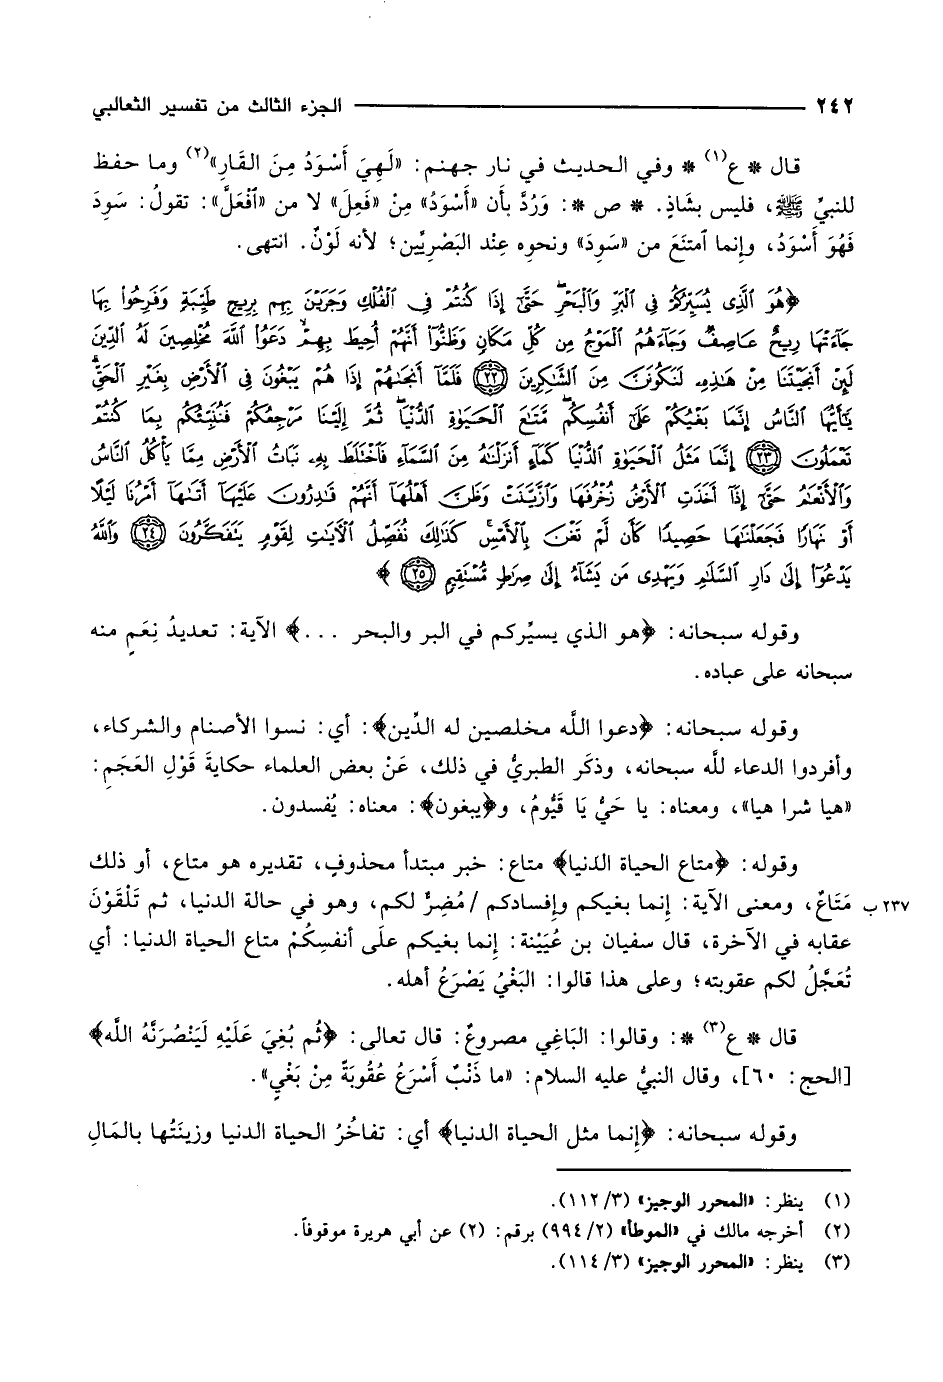 ٢٤٢ الجزء الثالث من تفسير الثعالبي
قال * ع(١) * وفي الحديث في نار جهنم: «لَهِيَ أَسْوَدُ مِنَ القَارِ»(٢) وما حفظ
للنبيِّ ﷺ، فليس بشاذٍ. * ص *: وَرُدَّ بأن «أَسْوَدُ» مِنْ «فَعِلَ» لا من «أفْعَلَّ»: تقولُ: سَوِدَ
فَهُوَ أَسْوَدُ، وإنما آمتنَعَ من «سَوِدَ» ونحوِه عِنْد البَصْرِيِّين؛ لأنه لَوْنٌ. انتهى.
﴿هُوَ الَّذِى يُسَيِّرُكُمْ فِى الْبَرِّ وَالْبَحْرِ حَتَّىٰٓ إِذَا كُنتُمْ فِى الْفُلْكِ وَجَرَيْنَ بِهِم بِرِيحٍ طَيِّبَةٍ وَفَرِحُوا۟ بِهَا
جَآءَتْهَا رِيحٌ عَاصِفٌ وَجَآءَهُمُ الْمَوْجُ مِن كُلِّ مَكَانٍ وَظَنُّوٓا۟ أَنَّهُمْ أُحِيطَ بِهِمْ دَعَوُا۟ اللَّهَ مُخْلِصِينَ لَهُ الدِّينَ
لَئِنْ أَنجَيْتَنَا مِنْ هَٰذِهِۦ لَنَكُونَنَّ مِنَ الشَّٰكِرِينَ ﴿٢٢﴾ فَلَمَّآ أَنجَىٰهُمْ إِذَا هُمْ يَبْغُونَ فِى الْأَرْضِ بِغَيْرِ الْحَقِّ
يَٰٓأَيُّهَا النَّاسُ إِنَّمَا بَغْيُكُمْ عَلَىٰٓ أَنفُسِكُم مَّتَٰعَ الْحَيَوٰةِ الدُّنْيَا ثُمَّ إِلَيْنَا مَرْجِعُكُمْ فَنُنَبِّئُكُم بِمَا كُنتُمْ
تَعْمَلُونَ ﴿٢٣﴾ إِنَّمَا مَثَلُ الْحَيَوٰةِ الدُّنْيَا كَمَآءٍ أَنزَلْنَٰهُ مِنَ السَّمَآءِ فَاخْتَلَطَ بِهِۦ نَبَاتُ الْأَرْضِ مِمَّا يَأْكُلُ النَّاسُ
وَالْأَنْعَٰمُ حَتَّىٰٓ إِذَآ أَخَذَتِ الْأَرْضُ زُخْرُفَهَا وَازَّيَّنَتْ وَظَنَّ أَهْلُهَآ أَنَّهُمْ قَٰدِرُونَ عَلَيْهَآ أَتَىٰهَآ أَمْرُنَا لَيْلًا
أَوْ نَهَارًا فَجَعَلْنَٰهَا حَصِيدًا كَأَن لَّمْ تَغْنَ بِالْأَمْسِ كَذَٰلِكَ نُفَصِّلُ الْآيَٰتِ لِقَوْمٍ يَتَفَكَّرُونَ ﴿٢٤﴾ وَاللَّهُ
يَدْعُوٓا۟ إِلَىٰ دَارِ السَّلَٰمِ وَيَهْدِى مَن يَشَآءُ إِلَىٰ صِرَٰطٍ مُّسْتَقِيمٍ ﴿٢٥﴾﴾
وقوله سبحانه: ﴿هو الذي يسيِّركم في البر والبحر ...﴾ الآية: تعديدُ نِعَمٍ منه
سبحانه على عباده.
وقوله سبحانه: ﴿دعوا اللَّه مخلصين له الدِّين﴾: أي: نسوا الأصنام والشركاء،
وأفردوا الدعاء للَّه سبحانه، وذكَر الطبريُّ في ذلك، عَنْ بعض العلماء حكايةَ قَوْلِ العَجَمِ:
«هيا شرا هيا»، ومعناه: يا حَيُّ يَا قَيُّومُ، و﴿يبغون﴾: معناه: يُفسدون.
وقوله: ﴿متاع الحياة الدنيا﴾ متاع: خبر مبتدأ محذوفٍ، تقديره هو متاع، أو ذلك
مَتَاعٌ، ومعنى الآية: إِنما بغيكم وإِفسادكم / مُضِرٌّ لكم، وهو في حالة الدنيا، ثم تَلْقَوْنَ ٢٣٧ ب
عقابه في الآخرة، قال سفيان بن عُيَيْنة: إِنما بغيكم علَى أنفسِكُمْ متاع الحياة الدنيا: أي
تُعَجَّلُ لكم عقوبته؛ وعلى هذا قالوا: البَغْيُ يَصْرَعُ أهله.
قال * ع(٣) *: وقالوا: البَاغِي مصروعٌ: قال تعالى: ﴿ثُم بُغِيَ عَلَيْهِ لَيَنْصُرَنَّهُ اللَّه﴾
[الحج: ٦٠]، وقال النبيُّ عليه السلام: «ما ذَنْبٌ أَسْرَعُ عُقُوبَةً مِنْ بَغْيٍ».
وقوله سبحانه: ﴿إِنما مثل الحياة الدنيا﴾ أي: تفاخُرُ الحياة الدنيا وزينَتُها بالمَالِ
(١) ينظر: «المحرر الوجيز» (٣/١١٢).
(٢) أخرجه مالك في «الموطأ» (٢/٩٩٤) برقم: (٢) عن أبي هريرة موقوفاً.
(٣) ينظر: «المحرر الوجيز» (٣/١١٤).